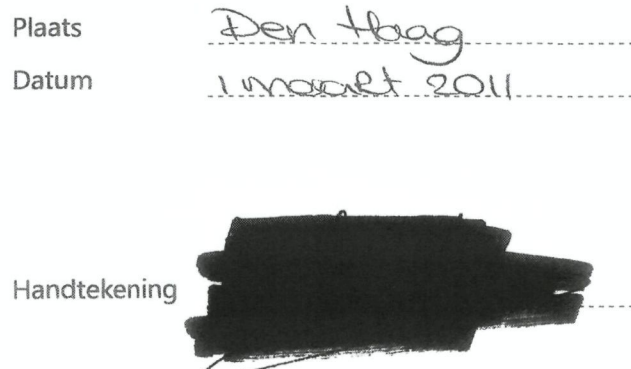 Plaats Den Haag
Datum 1 maart 2011
Handtekening